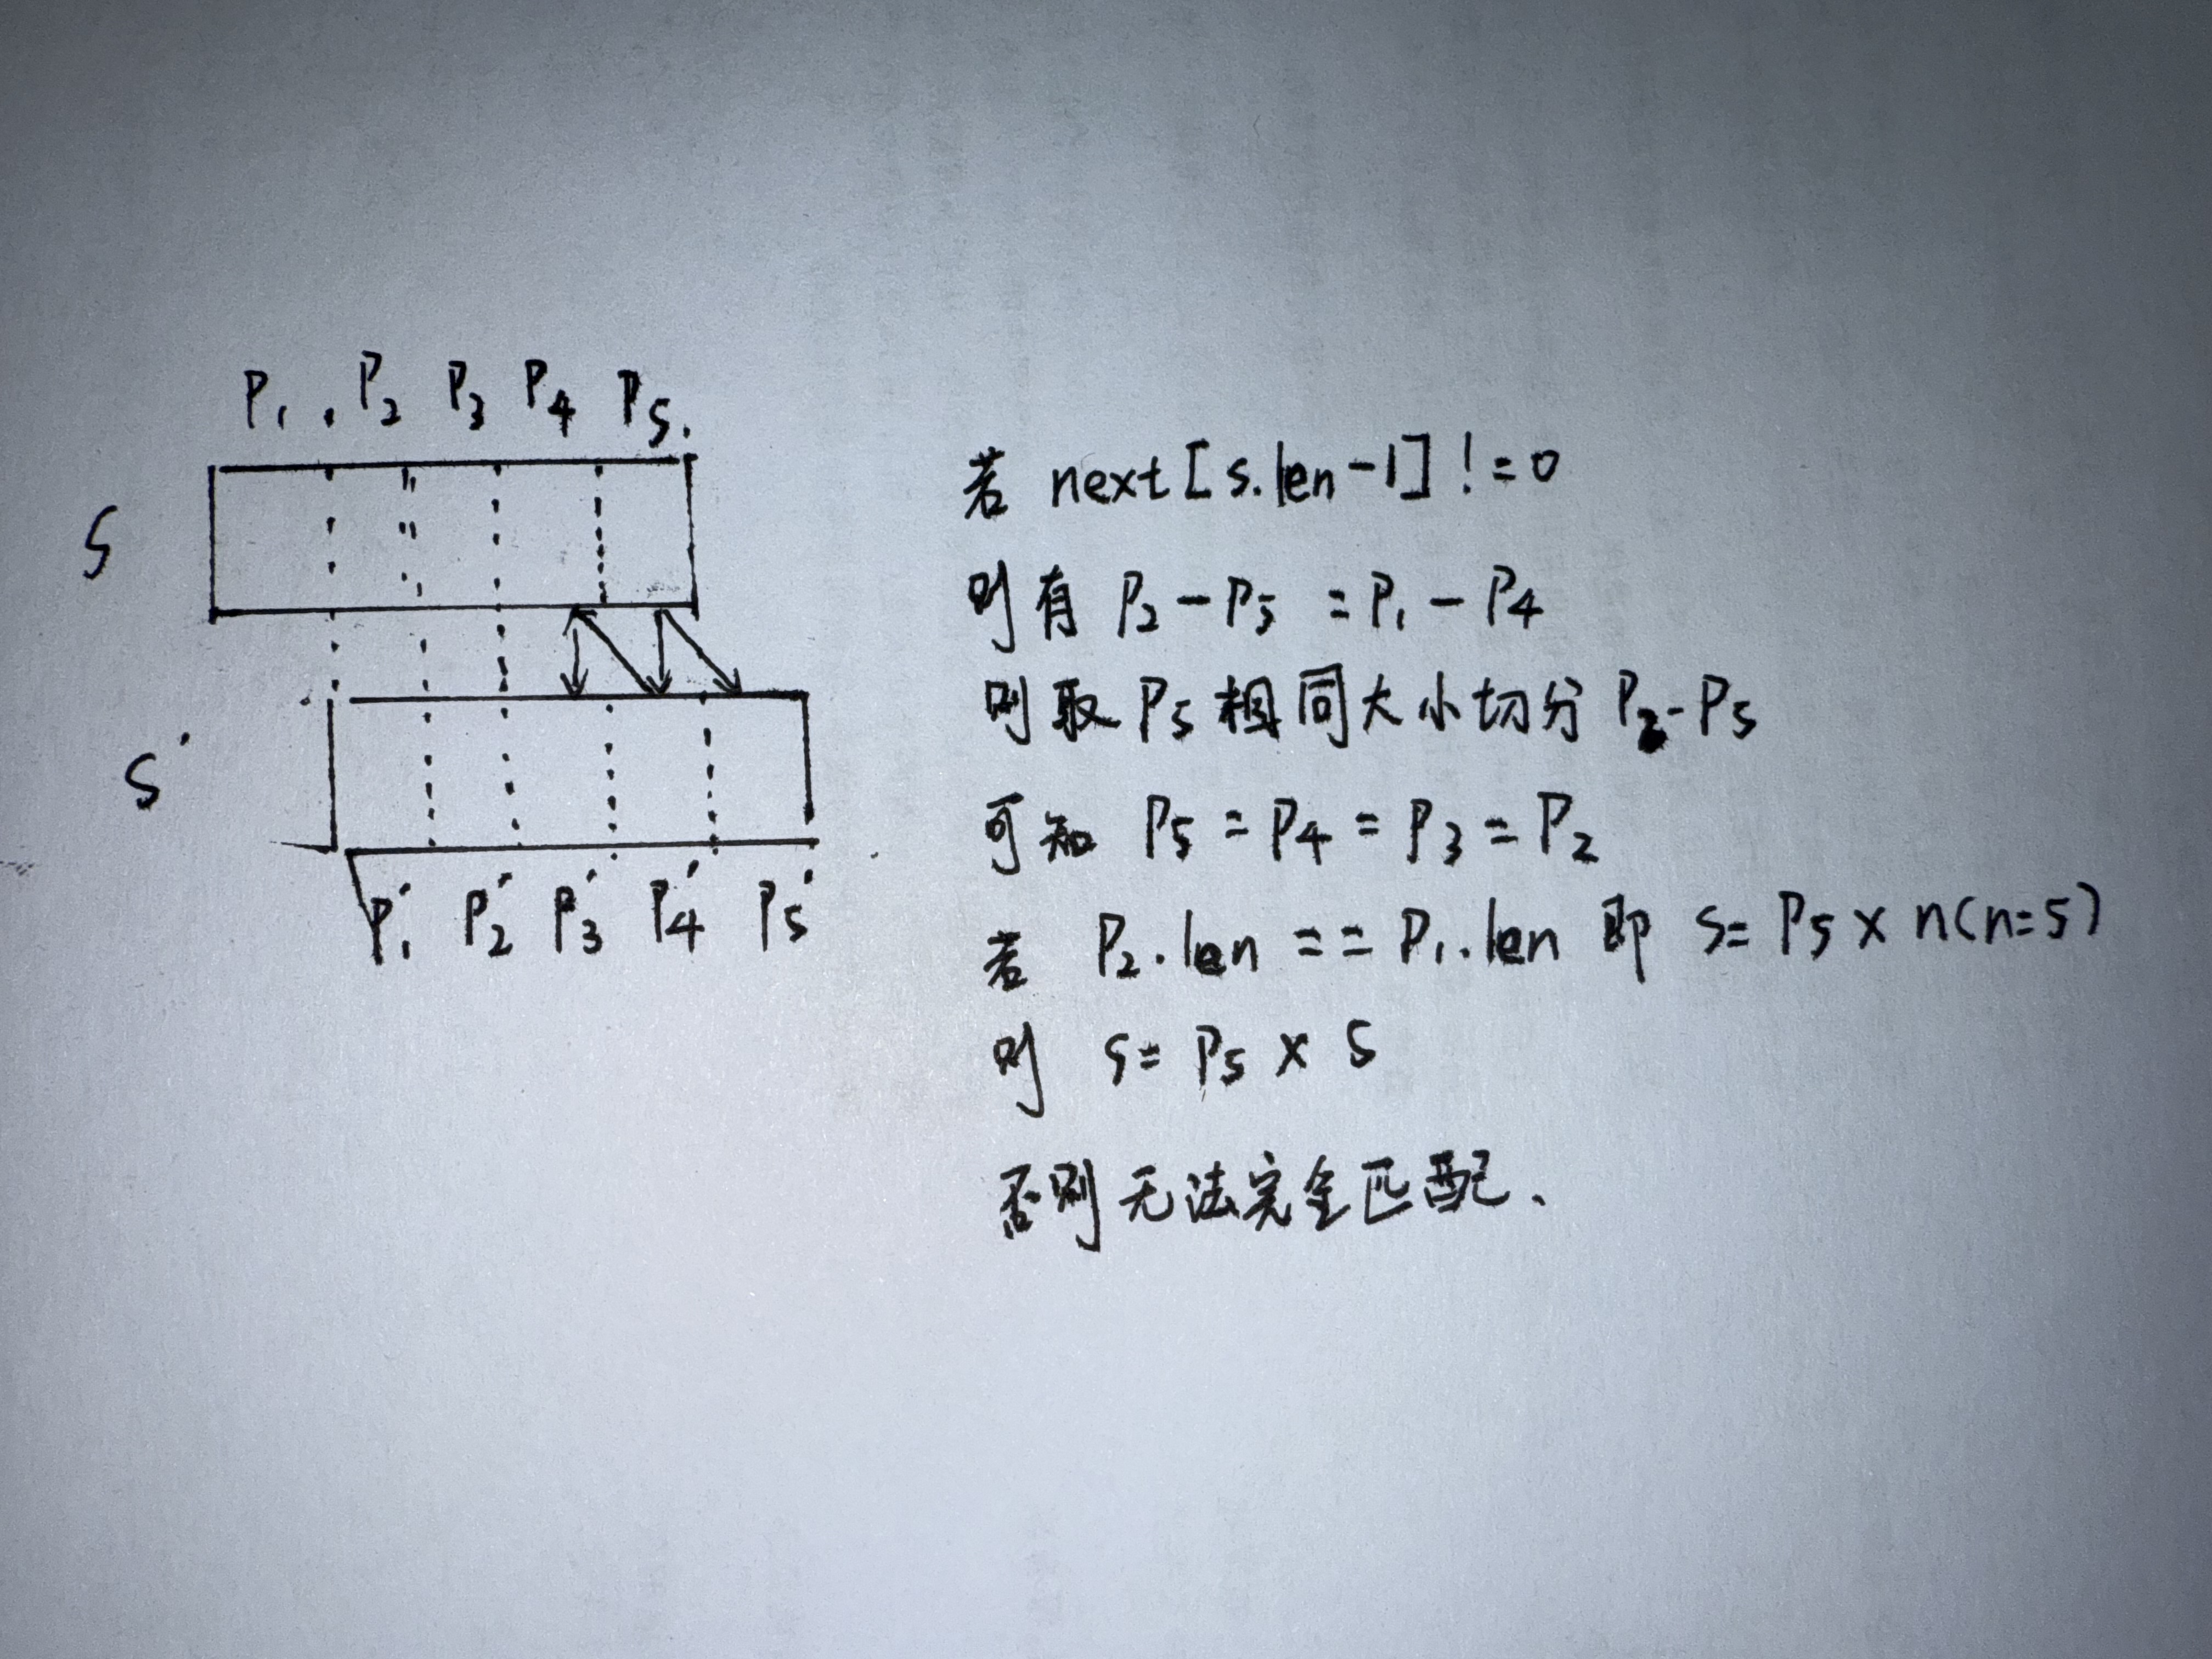 S
P₁ P₂ P₃ P₄ P₅
S'
P₁' P₂' P₃' P₄' P₅'
若 next[s.len-1] != 0
则有 P₂-P₅ = P₁-P₄
则取 P₅ 相同大小切分 P₂-P₅
可知 P₅ = P₄ = P₃ = P₂
若 P₂.len == P₁.len 即 S = P₅ × n(n=5)
则 S = P₅ × 5
否则无法完全匹配.